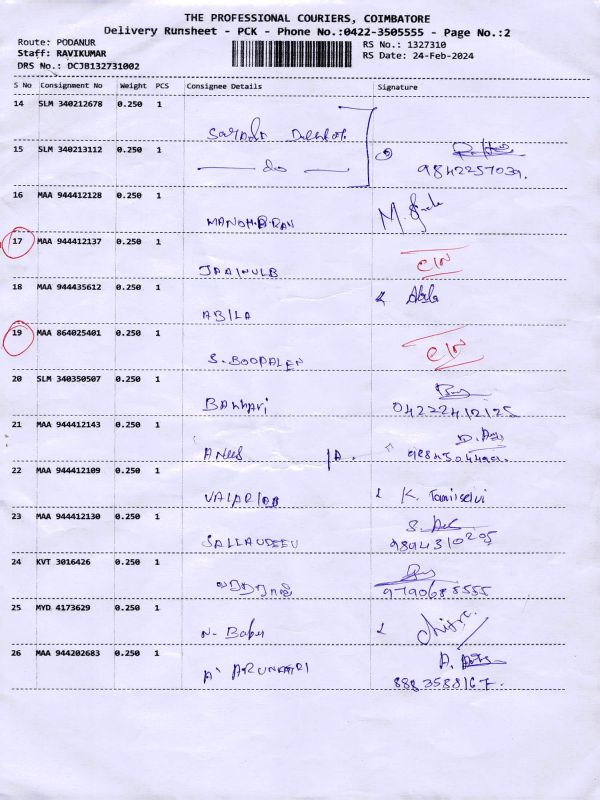 THE PROFESSIONAL COURIERS, COIMBATORE
Delivery Runsheet - PCK - Phone No.:0422-3505555 - Page No.:2
Route: PODANUR RS No.: 1327310
Staff: RAVIKUMAR RS Date: 24-Feb-2024
DRS No.: DCJB132731002
S No Consignment No Weight PCS Consignee Details Signature
14 SLM 340212678 0.250 1
15 SLM 340213112 0.250 1
do
9842257039.
16 MAA 944412128 0.250 1
M.
17 MAA 944412137 0.250 1
C/N
JAAINULB
18 MAA 944435612 0.250 1
ABILA
19 MAA 864025401 0.250 1
C/N
S. BOOPALEN
20 SLM 340350507 0.250 1
04222412125
21 MAA 944412143 0.250 1
ANees /A.
22 MAA 944412109 0.250 1
K. Tamilselvi
23 MAA 944412130 0.250 1
SALLAUDEEN 9894310205
24 KVT 3016426 0.250 1
9790688555
25 MYD 4173629 0.250 1
N. Babu
26 MAA 944202683 0.250 1
8883588167.